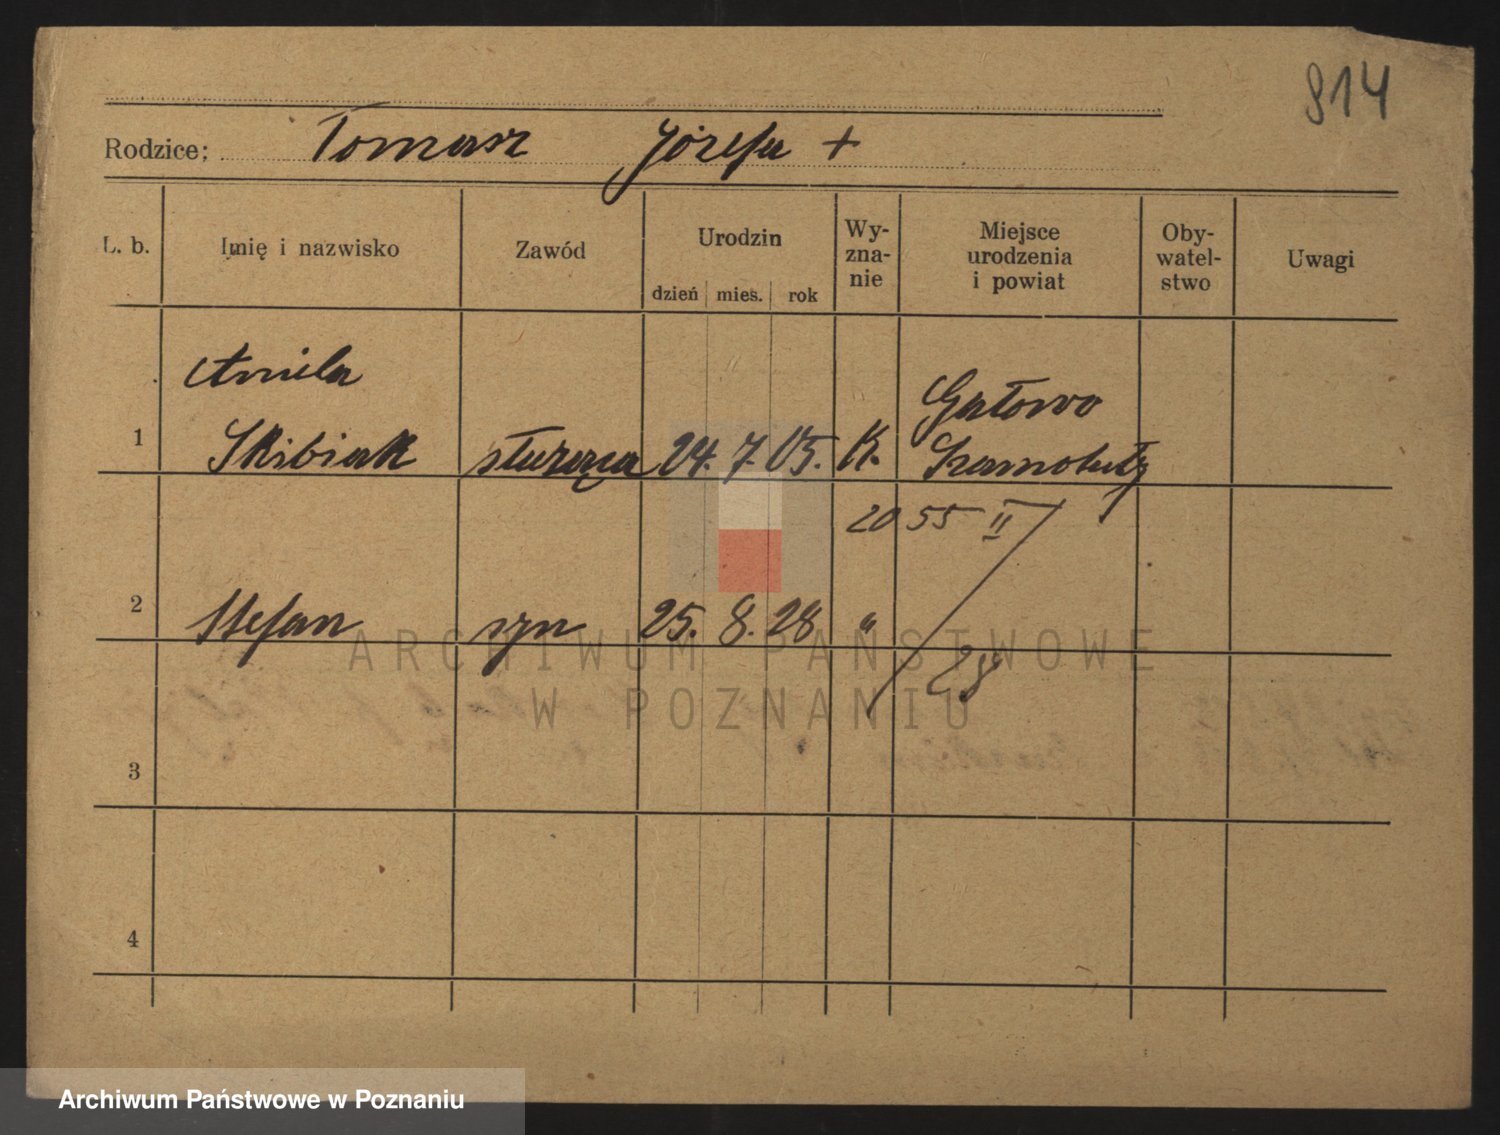 814
Rodzice: Tomasz Józefa +
L. b. Imię i nazwisko Zawód Urodzin dzień mies. rok Wy-zna-nie Miejsce urodzenia i powiat Oby-watel-stwo Uwagi
Aniela Gałowo
1 Skibiak służąca 24. 7. 05. K. Szamotuły
2055 II
2 Stefan syn 25. 8. 28 "
28
3
4
ARCHIWUM PAŃSTWOWE
W POZNANIU
Archiwum Państwowe w Poznaniu